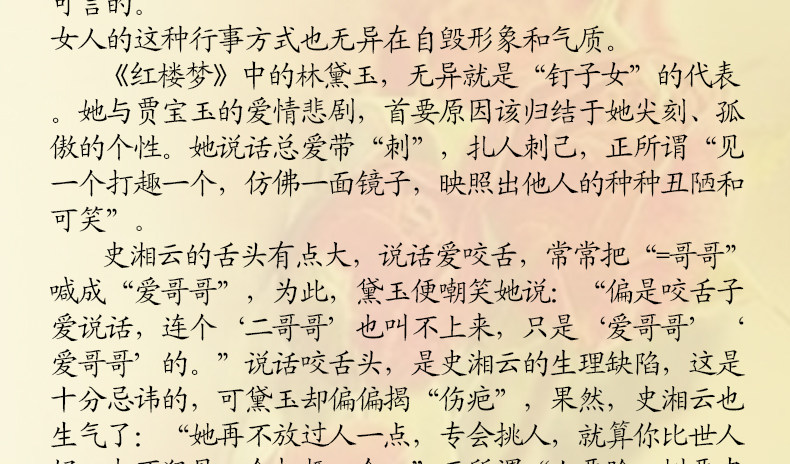 可言的。
女人的这种行事方式也无异在自毁形象和气质。
《红楼梦》中的林黛玉，无异就是“钉子女”的代表
。她与贾宝玉的爱情悲剧，首要原因该归结于她尖刻、孤
傲的个性。她说话总爱带“刺”，扎人刺己，正所谓“见
一个打趣一个，仿佛一面镜子，映照出他人的种种丑陋和
可笑”。
史湘云的舌头有点大，说话爱咬舌，常常把“=哥哥”
喊成“爱哥哥”，为此，黛玉便嘲笑她说：“偏是咬舌子
爱说话，连个‘二哥哥’也叫不上来，只是‘爱哥哥’‘
爱哥哥’的。”说话咬舌头，是史湘云的生理缺陷，这是
十分忌讳的，可黛玉却偏偏揭“伤疤”，果然，史湘云也
生气了：“她再不放过人一点，专会挑人，就算你比世人